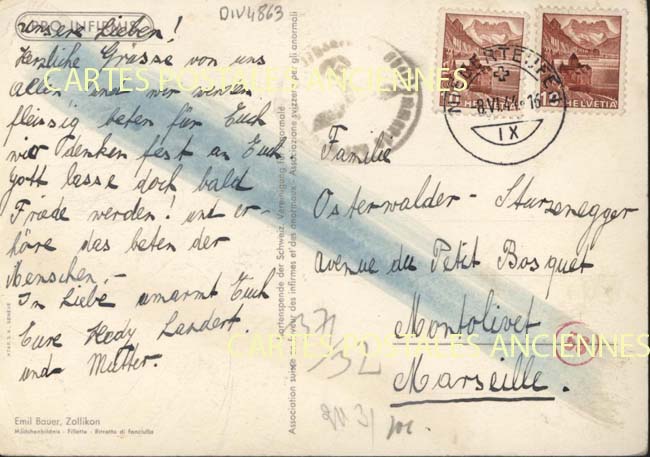 DIV4863
PRO INFIRMIS
Unsere Lieben!
Herzliche Grüsse von uns
Allen und wir werden
fleissig beten für Euch
wir denken fest an Euch
Gott lasse doch bald
Friede werden! und er-
höre das beten der
Menschen.-
In Liebe umarmt Euch
Eure Hedy Landert.
und Mutter.
Emil Bauer, Zollikon
Mädchenbildnis - Fillette - Ritratto di fanciulla
Kartenspende der Schweiz. Vereinigung für Anormale
Association suisse en faveur des infirmes et des anormaux - Associazione svizzera per gli anormali
HELVETIA
HELVETIA
8.VI.44-16
IX
Familie
Osterwalder - Sturzenegger
avenue du Petit Bosquet
Montolivet
Marseille.
CARTES POSTALES ANCIENNES
CARTES POSTALES ANCIENNES